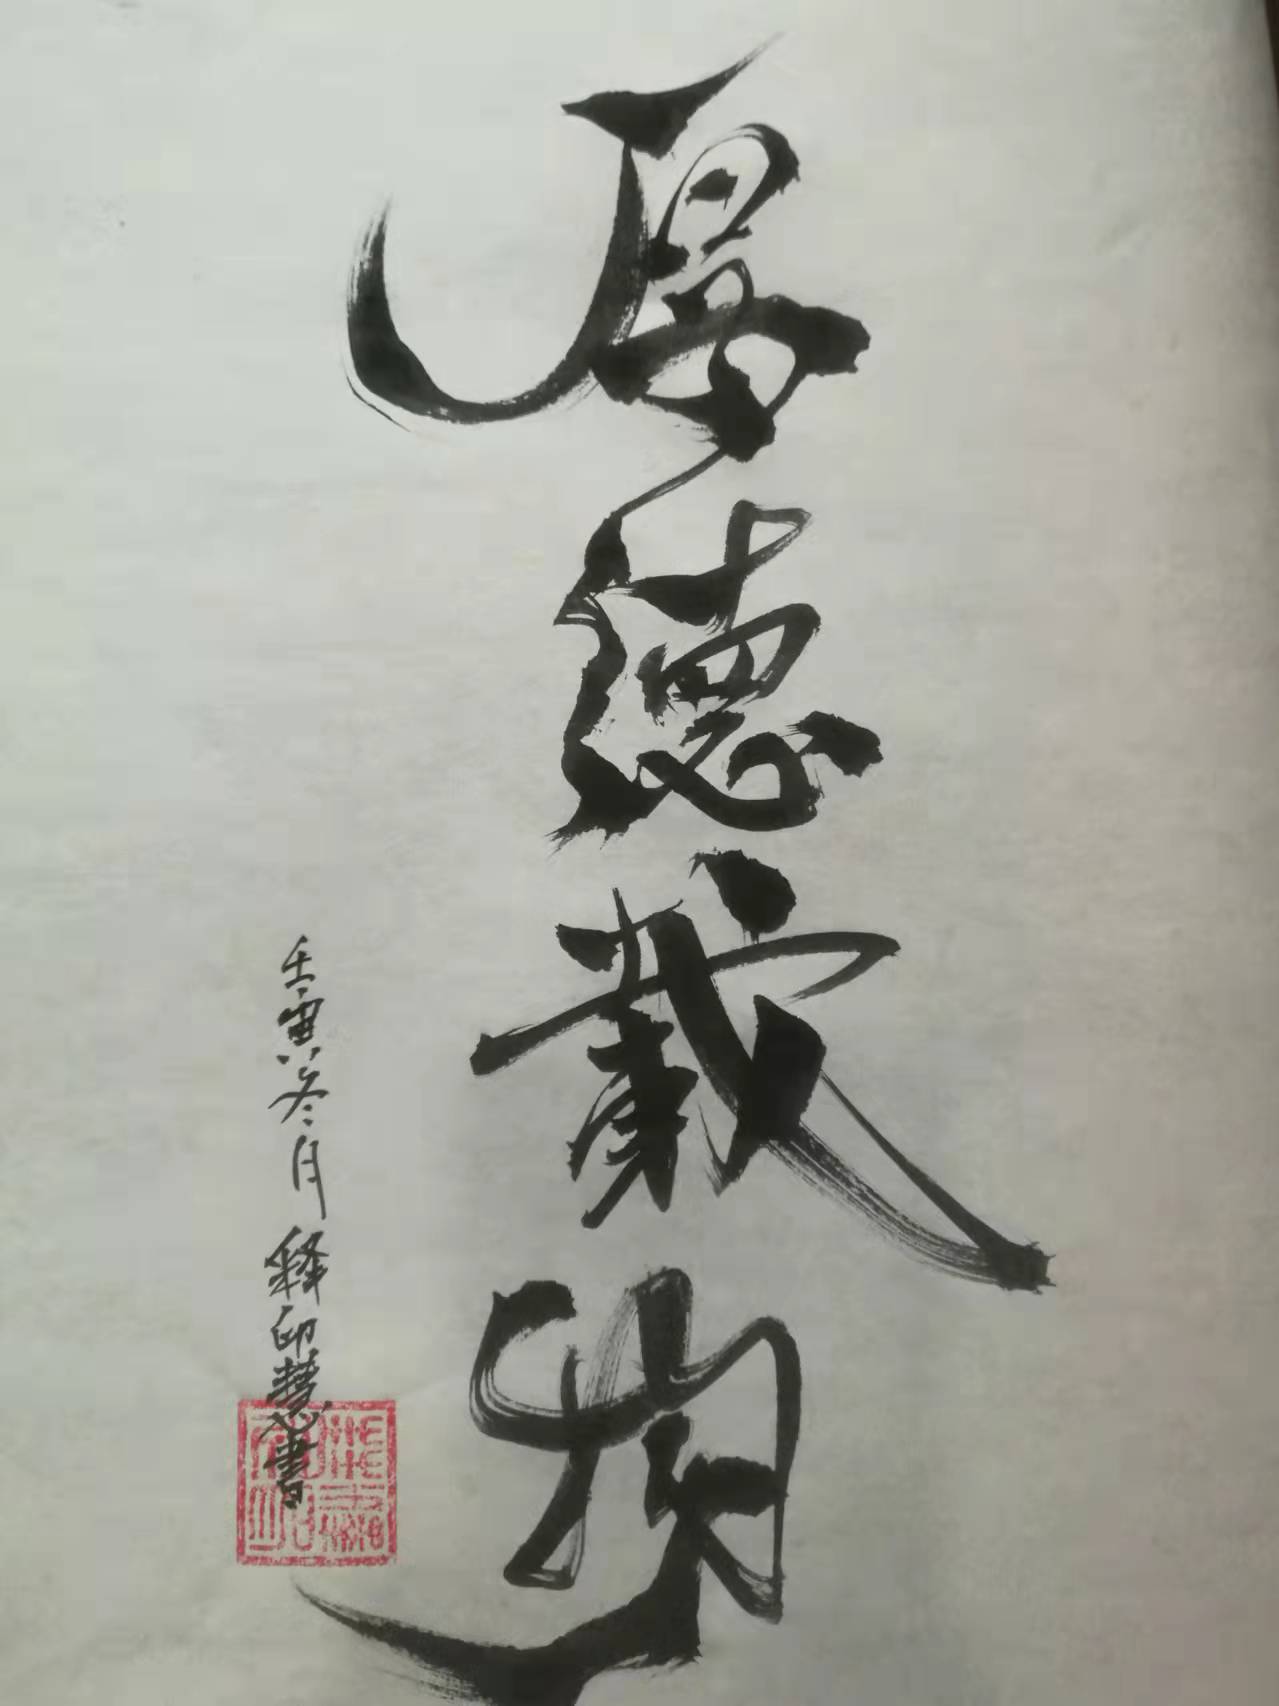 厚德载物
壬寅冬月释印慧書